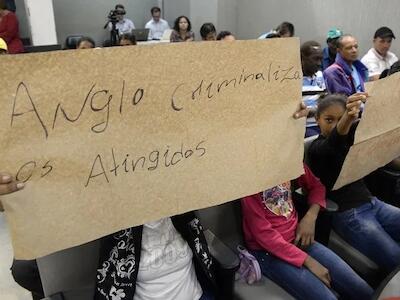 Anglo Criminaliza
os Atingidos